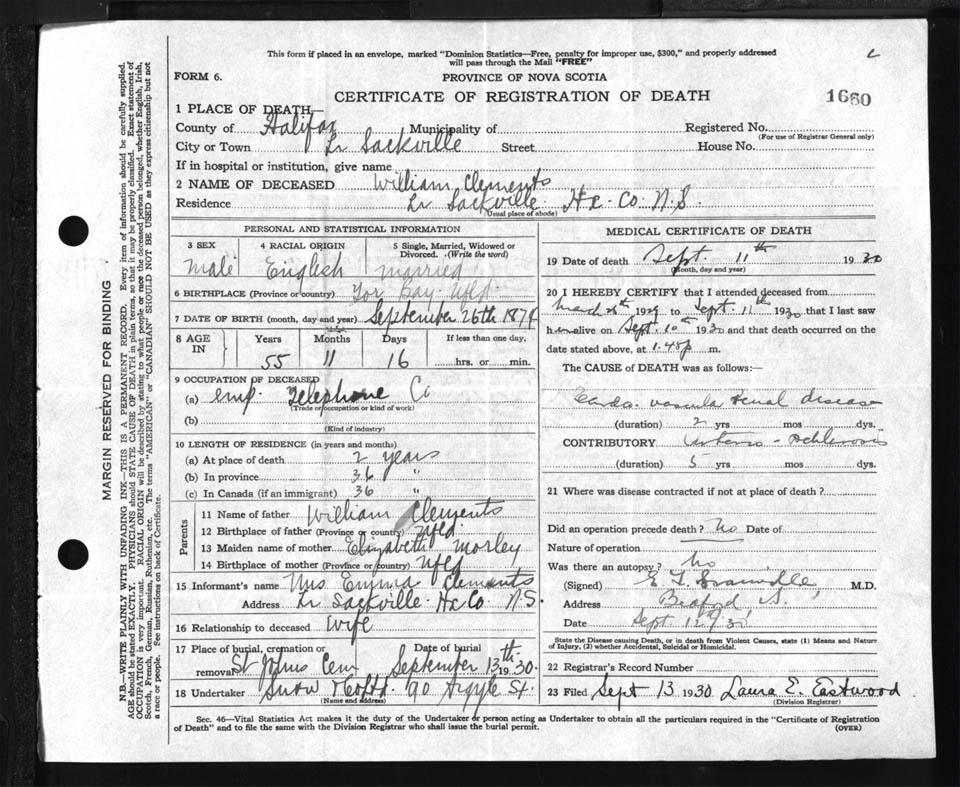 This form if placed in an envelope, marked "Dominion Statistics—Free, penalty for improper use, $300," and properly addressed
will pass through the Mail "FREE"
FORM 6.
PROVINCE OF NOVA SCOTIA
CERTIFICATE OF REGISTRATION OF DEATH
1660
1 PLACE OF DEATH—
County of Halifax Municipality of Registered No.
(For use of Registrar General only)
City or Town Lr Sackville Street House No.
If in hospital or institution, give name
2 NAME OF DECEASED William Clements
Residence Lr Sackville Hx. Co. N.S.
(Usual place of abode)
PERSONAL AND STATISTICAL INFORMATION
3 SEX 4 RACIAL ORIGIN 5 Single, Married, Widowed or Divorced. (Write the word)
Male English married
6 BIRTHPLACE (Province or country) Tor Bay Nfld
7 DATE OF BIRTH (month, day and year) September 26th 1874
8 AGE IN Years Months Days If less than one day,
55 11 16 hrs. or min.
9 OCCUPATION OF DECEASED
(a) emp. Telephone Co
(Trade or occupation or kind of work)
(b)
(Kind of industry)
10 LENGTH OF RESIDENCE (in years and months)
(a) At place of death 2 years
(b) In province 36 "
(c) In Canada (if an immigrant) 36 "
Parents
11 Name of father William Clements
12 Birthplace of father (Province or country) Nfld
13 Maiden name of mother Elizabeth Morley
14 Birthplace of mother (Province or country) Nfld
15 Informant's name Mrs Emma Clements
Address Lr Sackville Hx Co N.S.
16 Relationship to deceased Wife
17 Place of burial, cremation or removal Date of burial
St Johns Cem September 13th 1930.
18 Undertaker Snow & Co Ltd. 90 Argyle St.
(Name and address)
MEDICAL CERTIFICATE OF DEATH
19 Date of death Sept. 11th 1930
(Month, day and year)
20 I HEREBY CERTIFY that I attended deceased from
March 1929 to Sept. 11th 1930 that I last saw
him alive on Sept. 10th 1930 and that death occurred on the
date stated above, at 1.45p m.
The CAUSE of DEATH was as follows:—
Cardo-vascular renal disease
(duration) 2 yrs mos dys.
CONTRIBUTORY Arterio-Schlerosis
(duration) 5 yrs mos dys.
21 Where was disease contracted if not at place of death?
Did an operation precede death? No Date of
Nature of operation
Was there an autopsy? No
(Signed) M.D.
Address
Date Sept 12th 30
State the Disease causing Death, or in death from Violent Causes, state (1) Means and Nature
of Injury, (2) whether Accidental, Suicidal or Homicidal.
22 Registrar's Record Number
23 Filed Sept 13 1930 Laura E. Eastwood
(Division Registrar)
Sec. 46—Vital Statistics Act makes it the duty of the Undertaker or person acting as Undertaker to obtain all the particulars required in the "Certificate of Registration
of Death" and to file the same with the Division Registrar who shall issue the burial permit. (OVER)
MARGIN RESERVED FOR BINDING
N.B.—WRITE PLAINLY WITH UNFADING INK—THIS IS A PERMANENT RECORD. Every item of information should be carefully supplied.
AGE should be stated EXACTLY. PHYSICIANS should STATE CAUSE OF DEATH in plain terms, so that it may be properly classified. Exact statement of
OCCUPATION is very important. RACIAL ORIGIN will be described by stating to what people or race the deceased person belonged, whether English, Irish,
Scotch, French, German, Russian, Ruthenian, etc. The terms "AMERICAN" or "CANADIAN" SHOULD NOT BE USED as they express citizenship but not
a race or people. See instructions on back of Certificate.